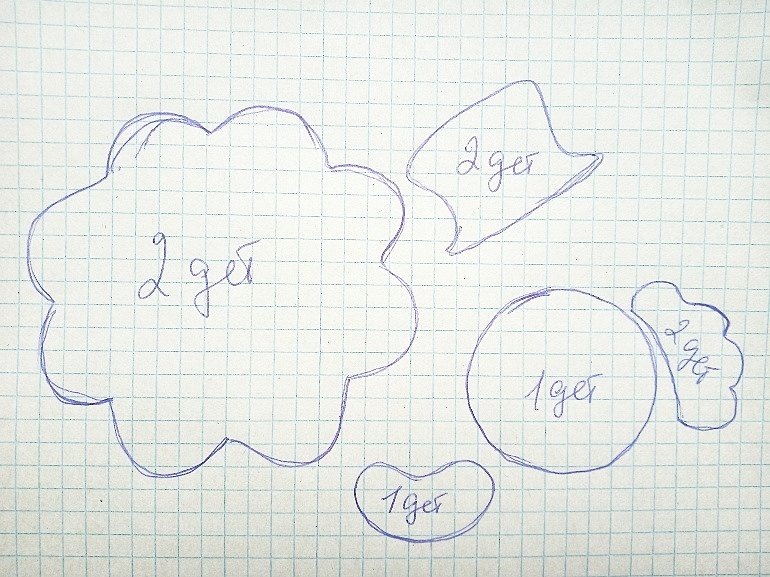 2 дет
2 дет
1 дет
2 дет
1 дет